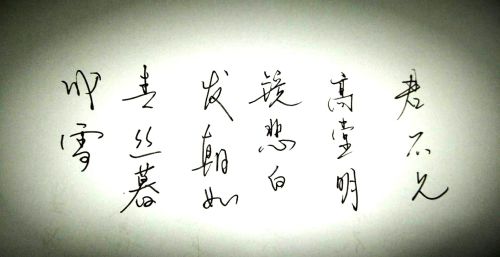 君不见
高堂明
镜悲白
发朝如
青丝暮
成雪